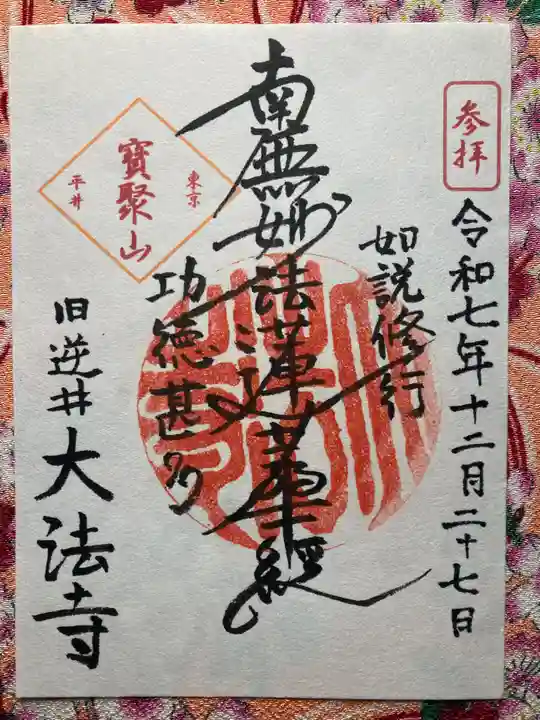 参拝
令和七年十二月二十七日
如説修行
南無妙法蓮華経
功徳甚多
東京
寶聚山
平井
旧逆井大法寺